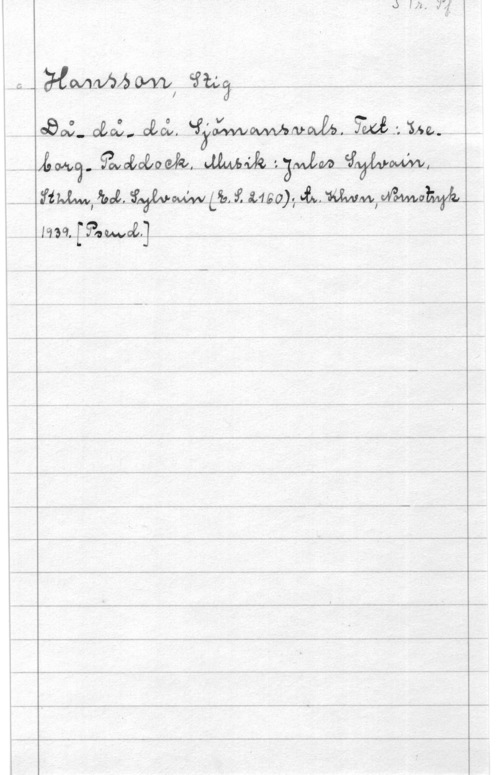 Hansson, Stig
Då- då- då. Sjömansvals. Text: Ise-
borg- Paddock. Musik: Jules Sylvain.
Sthlm, Ed. Sylvain (E. S. 2160); tr. Khvn, Nomotryk
1939. [Pseud.]